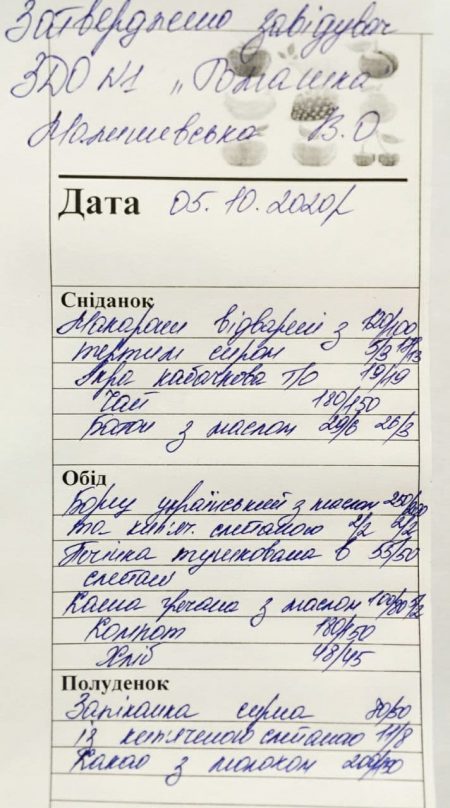 Затверджено завідувач
ЗДО №1 „Ромашка
Малишевська В.О
Дата 05.10.2020р
Сніданок
Макарони відварені з 120/100
тертим сиром 5/3
Ікра кабачкова т/о 19/19
Чай 180/150
Батон з маслом 29/6 26/3
Обід
Борщ український з маслом 250/200
та кип'яч. сметаною 2/2 2/2
Печінка тушкована в 55/50
сметані
Каша гречана з маслом 100/80
Компот 180/150
Хліб 48/45
Полуденок
Запіканка сирна
із кип'яченою сметаною 11/8
Какао з молоком 200/150